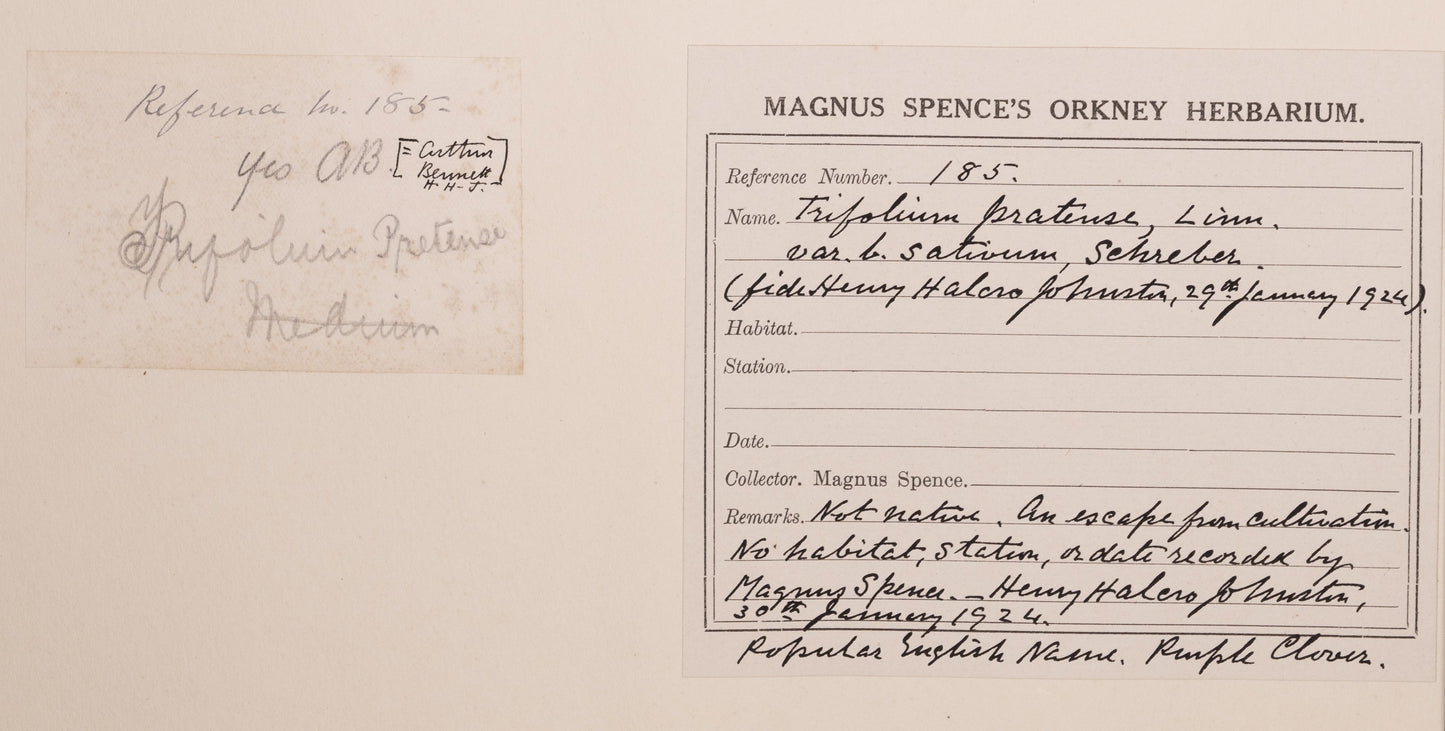 Reference No. 185
Yes AB [= Arthur
Bennett
H.H.J.]
Trifolium Pretense
Medium
MAGNUS SPENCE'S ORKNEY HERBARIUM.
Reference Number. 185.
Name. Trifolium pratense, Linn.
var. b. sativum, Schreber.
(fide Henry Halcro Johnston, 29th January 1924).
Habitat.
Station.
Date.
Collector. Magnus Spence.
Remarks. Not native. An escape from cultivation.
No habitat, station, or date recorded by
Magnus Spence. — Henry Halcro Johnston,
30th January 1924.
Popular English Name. Purple Clover.